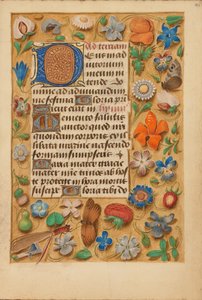 Ad tertiam
Deus in ad
iutorium
meum in
tende Do
mine ad adiuvandum
me festina Gloria pri
sicut erat in
Memento salutis
auctor quod nri
quondam corporis ex il
libata virgine nascendo
formam sumpseris
Maria mater gratie
mater mie tu nos ab hos
te protege in hora mortis
suscipe Gloria tibi do